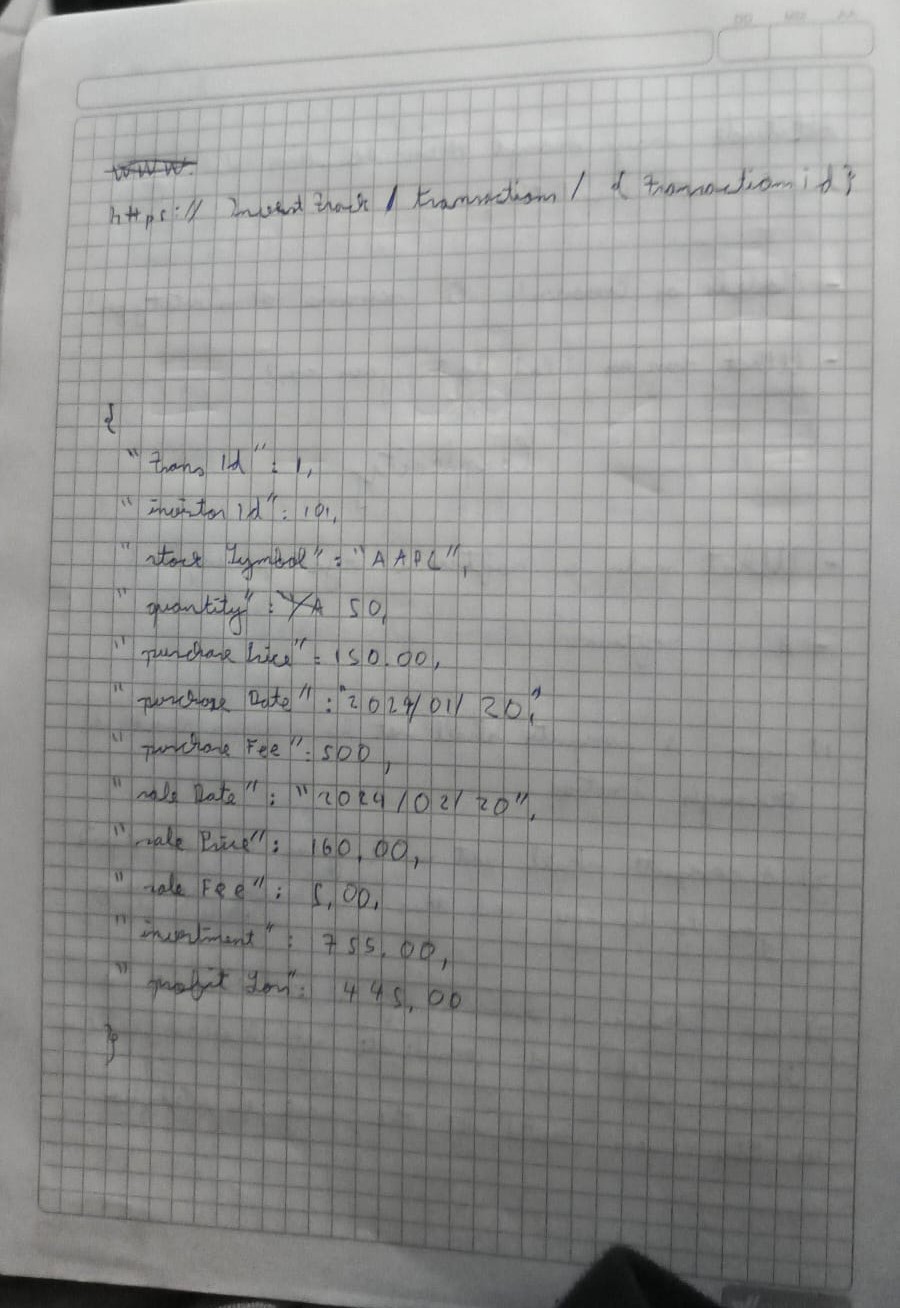 https:// Invest track / transaction / { transaction id }
{
"trans Id" : 1,
"investor Id" : 101,
"stock Symbol" : "AAPL",
"quantity" : 50,
"purchase Price" : 150.00,
"purchase Date" : "2024/01/20",
"purchase Fee" : 500,
"sale Date" : "2024/02/20",
"sale Price" : 160,00,
"sale Fee" : 5,00,
"investment" : 755.00,
"profit Loss" : 445,00
}